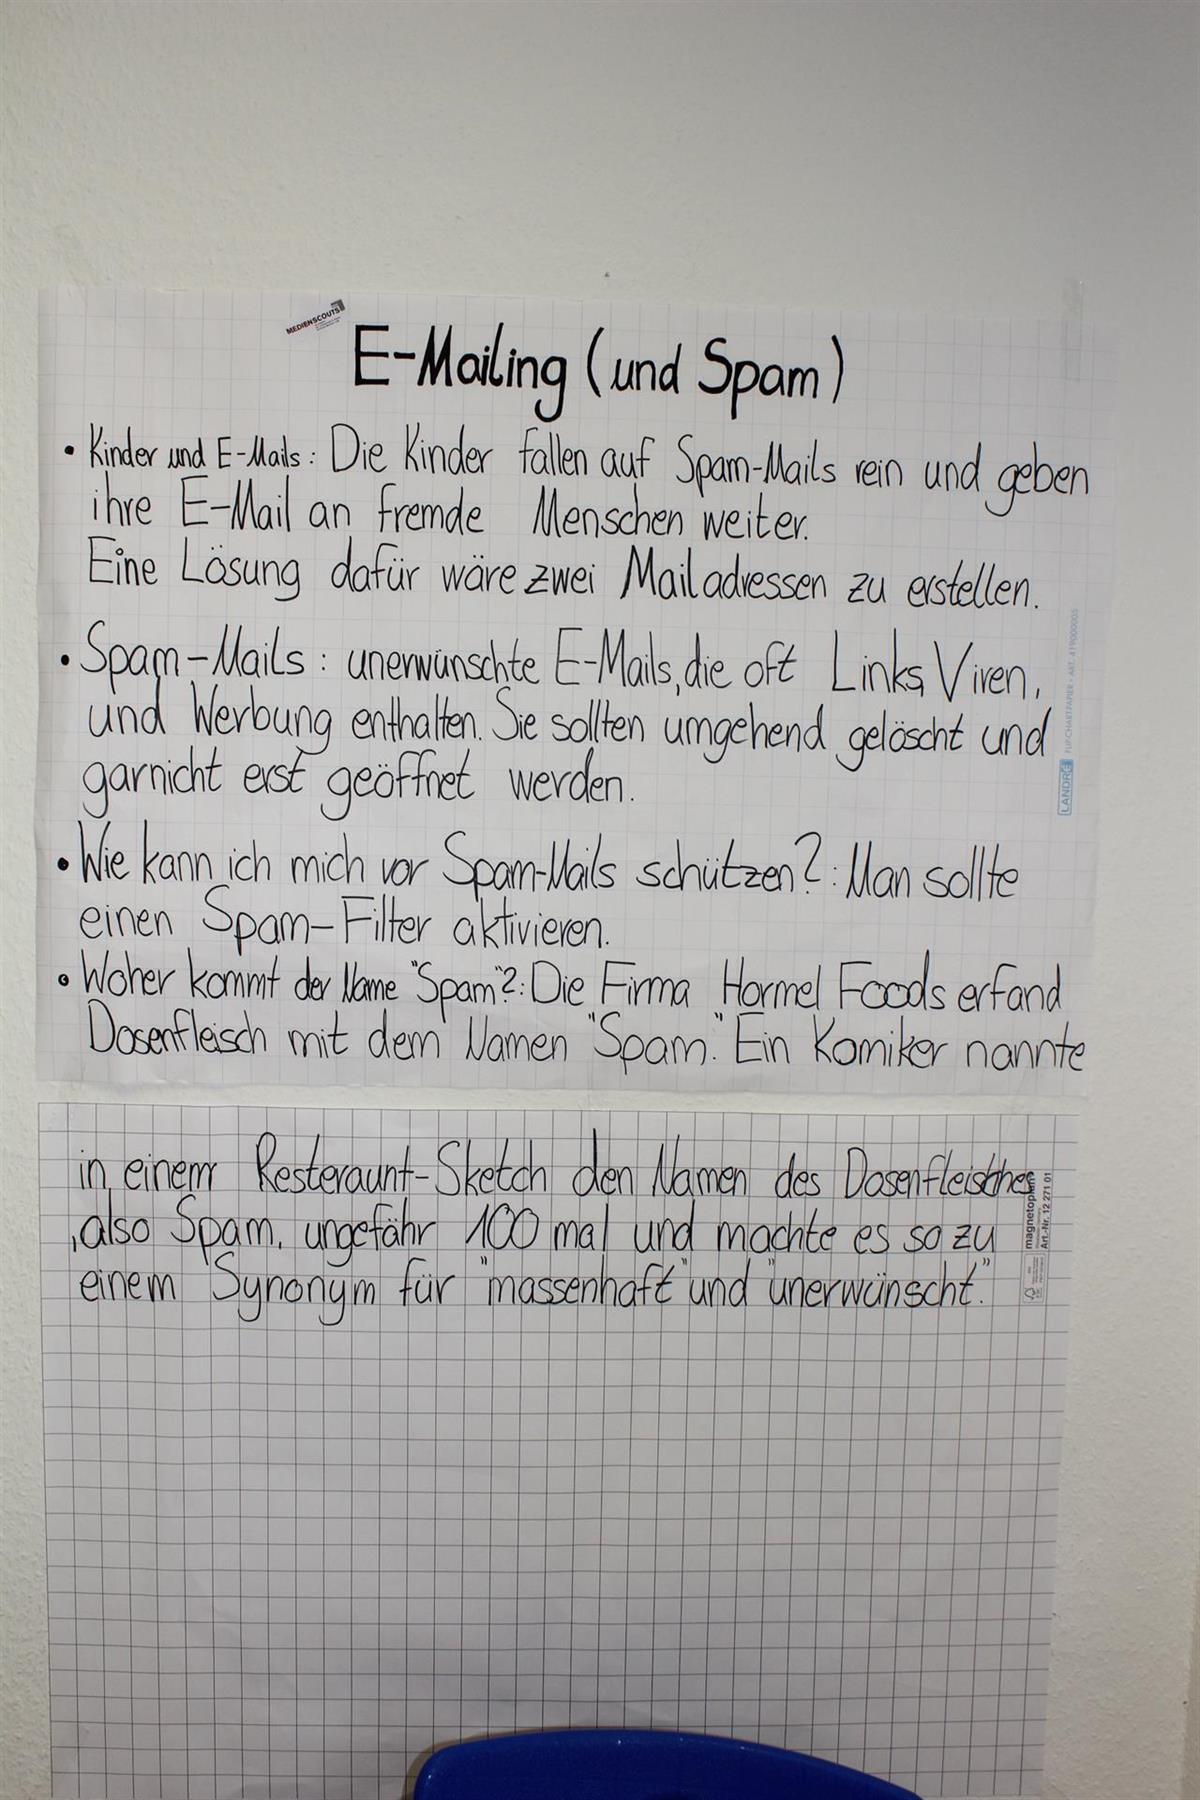 MEDIENSCOUTS
E-Mailing (und Spam)
• Kinder und E-Mails: Die Kinder fallen auf Spam-Mails rein und geben
ihre E-Mail an fremde Menschen weiter.
Eine Lösung dafür wäre zwei Mailadressen zu erstellen.
• Spam-Mails: unerwünschte E-Mails, die oft Links, Viren,
und Werbung enthalten. Sie sollten umgehend gelöscht und
garnicht erst geöffnet werden.
LANDRÉ FLIPCHARTPAPIER • ART. 419000005
• Wie kann ich mich vor Spam-Mails schützen?: Man sollte
einen Spam-Filter aktivieren.
• Woher kommt der Name "Spam"?: Die Firma Hormel Foods erfand
Dosenfleisch mit dem Namen "Spam." Ein Komiker nannte
in einem Resteraunt-Sketch den Namen des Dosenfleisches
, also Spam, ungefähr 100 mal und machte es so zu
einem Synonym für "massenhaft" und "unerwünscht."
magnetoplan
Art.-Nr. 12 271 01